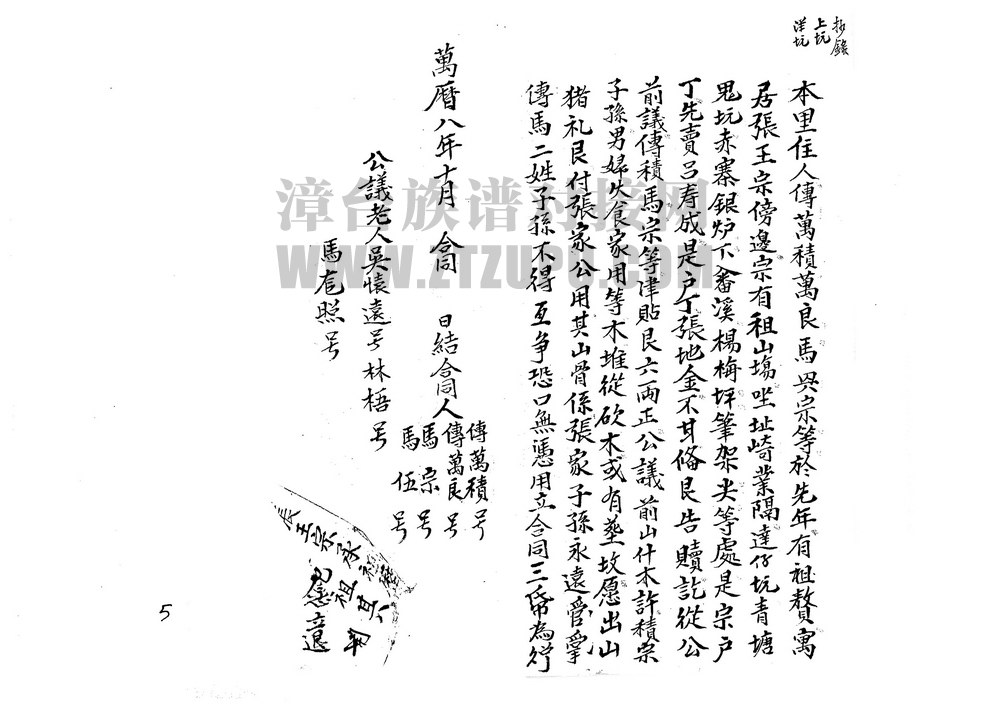 抄錄
上坑
洋坑
本里住人傳萬積萬良馬興宗等於先年有祖贅寓
居張王宗傍邊宗有祖山塲坐址崎業隔達仔坑青塘
鬼坑赤寨銀炉下畲溪楊梅坪筆架尖等處是宗戶
丁先賣呂寿成是户丁張地金不甘俻艮告贖訖從公
前議傳積馬宗等津貼艮六両正公議前山什木許積宗
子孫男婦失食家用等木堆從砍木或有塟坟愿出山
猪礼艮付張家公用其山骨係張家子孫永遠管掌
傳馬二姓子孫不得互争恐口無憑用立合同三帋為炤
萬曆八年十月 合同 日結合同人
傳萬積号
傳萬良号
馬宗号
馬伍号
公議老人吳懷遠号林梧号
馬卮照号
王宗
祖
漳台族谱对接网
WWW.ZTZUPU.COM
5